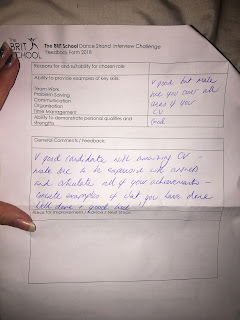 The BRIT SCHOOL
The BRIT School Dance Strand Interview Challenge
Feedback Form 2019
Reasons for and suitability for chosen role
Ability to provide examples of key skills:
Team Work
Problem Solving
Communication
Organisation
Time Management
V good but make
sure you cover all
areas of your
CV
Ability to demonstrate personal qualities and
strengths
Good
General Comments / Feedback:
V good candidate with amazing CV -
make sure to be expansive with answers
and articulate all of your achievements -
examples of what you have done
Well done & good luck !!
Areas for improvement / Next Steps